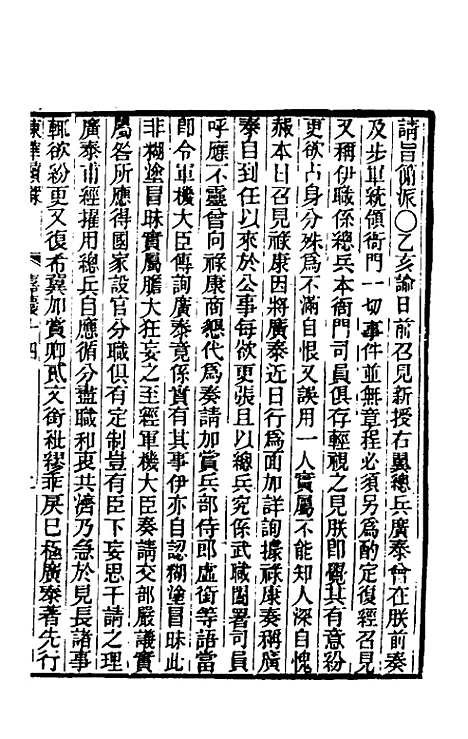 請旨簡派〇乙亥諭日前召見新授右翼總兵廣泰曾在朕前奏
及步軍統領衙門一切事件並無章程必須另為酌定復經召見
又稱伊職係總兵本衙門司員俱存輕視之見朕卽覺其有意紛
更欲占身分殊為不滿自恨又誤用一人實屬不能知人深自愧
赧本日召見祿康因將廣泰近日行為面加詳詢據祿康奏稱廣
泰自到任以來於公事每欲更張且以總兵究係武職闔署司員
呼應不靈曾向祿康商懇代為奏請加賞兵部侍郎虛銜等語當
卽令軍機大臣傳詢廣泰竟係實有其事伊亦自認糊塗冒昧此
非糊塗冒昧實屬膽大狂妄之至經軍機大臣奏請交部嚴議實
屬咎所應得國家設官分職俱有定制豈有臣下妄思干請之理
廣泰甫經擢用總兵自應循分盡職和衷共濟乃急於見長諸事
輒欲紛更又復希冀加賞卿貳文銜紕繆乖戾已極廣泰著先行
東華續錄 嘉慶十四